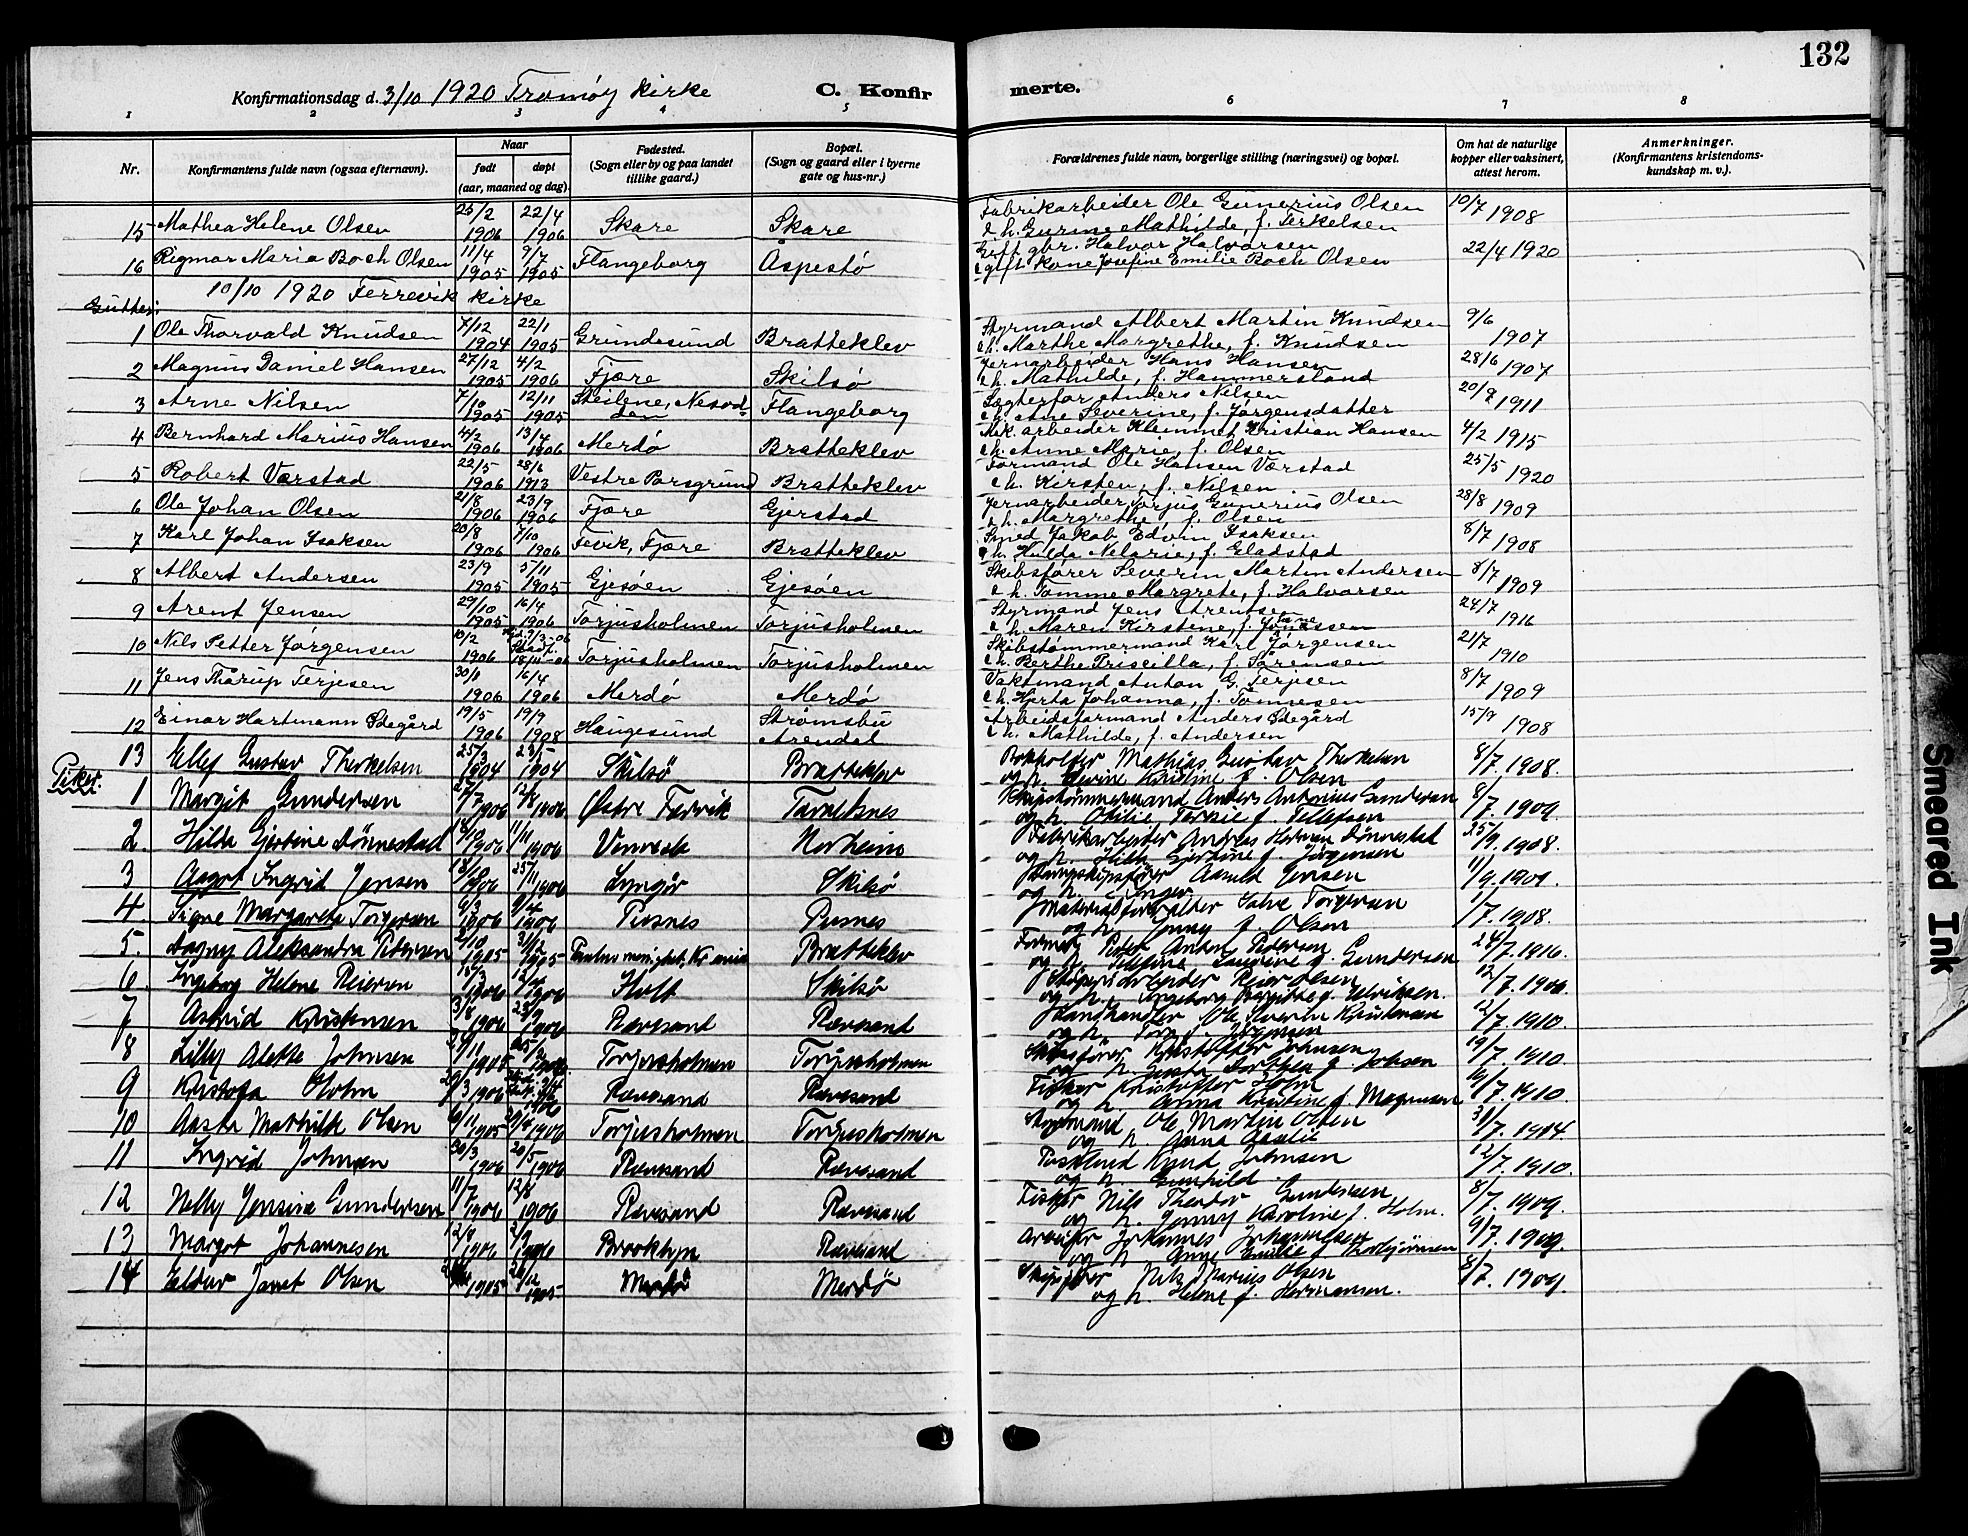 132
Konfirmationsdag d. 3/10 1920 Tromøy kirke
C. Konfirmerte.
1 2 3 4 5 6 7 8
Nr.
Konfirmantens fulde navn (ogsaa efternavn).
Naar
født døpt
(aar, maaned og dag).
Fødested.
(Sogn eller by og paa landet tillike gaard.)
Bopæl.
(Sogn og gaard eller i byerne gate og hus-nr.)
Forældrenes fulde navn, borgerlige stilling (næringsvei) og bopæl.
Om hat de naturlige kopper eller vaksinert, attest herom.
Anmerkninger.
(Konfirmantens kristendomskundskap m. v.).
15 Mathea Helene Olsen 25/2 1906 22/4 1906 Skare Skare Fabrikarbeider Ole Gunerius Olsen & h. Gurine Mathilde, f. Terkelsen 10/7 1908
16 Rigmor Maria Boch Olsen 11/4 1905 9/7 1905 Flangeborg Aspestø Gift gbr. Halvor Halvorsen & gift kone Josefine Emilie Boch Olsen 22/4 1920
10/10 1920 Ferrevik kirke
Gutter:
1 Ole Thorvald Knudsen 7/12 1904 22/1 1905 Grundesund Bratteklev Styrmand Albert Martin Knudsen & h. Marthe Margrethe, f. Knudsen 9/6 1907
2 Magnus Daniel Hansen 27/12 1905 4/2 1906 Fjære Skilsø Jernarbeider Hans Hansen & h. Mathilde, f. Hammersland 28/6 1907
3 Arne Nilsen 7/10 1905 12/11 1905 Steilene, Nesodden Flangeborg Ægtefar Anders Nilsen & h. Ane Severine, f. Jørgensdatter 20/9 1911
4 Bernhard Marius Hansen 4/2 1906 13/4 1906 Merdø Bratteklev Mek. arbeider Klemmet Kristian Hansen & h. Anne Marie, f. Olsen 4/2 1915
5 Robert Værstad 22/5 1906 28/6 1913 Vestre Porsgrund Bratteklev Formand Ole Hansen Værstad & h. Kirsten, f. Nilsen 25/5 1920
6 Ole Johan Olsen 21/8 1906 23/9 1906 Fjære Gjerstad Jernarbeider Torjus Gunerius Olsen & h. Margrethe f. Olsen 28/8 1909
7 Karl Johan Isaksen 20/8 1906 7/10 1906 Fevik, Fjære Bratteklev Smed Jakob Edvin Isaksen & h. Hulda Nelarie, f. Gladstad 8/7 1908
8 Albert Andersen 23/9 1905 5/11 1905 Gjesøen Gjesøen Skibsfører Severin Martin Andersen & h. Tomme Margrete, f. Halvorsen 8/7 1909
9 Arent Jensen 29/10 1905 16/4 1906 Torjusholmen Torjusholmen Styrmand Jens Arentsen & h. Maren Kirstine, f. Jonassen 24/7 1916
10 Nils Petter Jørgensen 10/2 1906 18/11-06 Torjusholmen Torjusholmen Skibstømmermand Karl Jørgensen & h. Berthe Priscilla, f. Sørensen 21/7 1910
11 Jens Thårup Terjesen 30/1 1906 16/4 1906 Merdø Merdø Vaktmand Anton G. Terjesen & h. Herta Johanna, f. Tønnesen 8/7 1909
12 Einar Hartmann Ødegård 19/5 1906 19/9 1908 Haugesund Strømsbu Arendal Arbeidsformand Anders Ødegård & h. Mathilde, f. Andersen 15/9 1908
13 Elley Gustav Therkelsen 25/3 1904 23/5 1904 Skilsø Bratteklev Bokholder Mathias Gustav Therkelsen og h. Kristine f. Olsen 8/7. 1908.
Piker.
1 Margit Gundersen 27/7 1906 12/8 1906 Østre Færvik Skipstømmermand Anders Antonius Gundersen og h. Otilie Terese f. Tellefsen 8/7. 1909.
2. Hilda Gjertine Dønnestad 14/9 1906 11/11 1906 Norheim Fabrikarbeider Andreas Herman Dønnestad og h. Hilda Gjertine f. Jørgensen 25/9. 1908.
3 Aagot Ingrid Jensen 1906 25/11 1906 Lyngør Skilsø Jensen og h. Inger 11/9. 1909.
4. Signe Margarete Torgersen 6/3 1906 9/4 1906 Pusnes Pusnes Materialforvalter Salve Torgersen og h. Jenny f. Olsen 1/7. 1908.
5. Dagny Aleksandra Pedersen 1905 31/12 1905 Paulus menighet, Kr.ania Bratteklev Former Peder Anton Pedersen og h. f. Gundersen 24/7. 1916.
6 Ingeborg Helene Reiersen 1906 1906 Holt Skilsø Skipsarbeider Reier Olsen og h. Ingeborg Birgitte f. Ulriksen. 12/7.
7 Astrid Kristensen 3/8 1906 23/9 1906 Rævesand Rævesand Ole Severin Kristensen og h. Tora f. Jørgensen 12/7. 1910.
8 Lilly Alette Johnsen 1905 Torjusholmen Torjusholmen Skibsfører Kristoffer Johnsen og h. Gusta Dorthea f. Jobsen 19/7. 1910
9 Kristofa Holm 29/3 1906 Rævesand Rævesand Fisker Kristoffer Holm og h. Anna Kristine f. Magnussen 19/7. 1910.
10 Aasta Mathilde Olsen 6/11 1905 20/4 1906 Torjusholmen Torjusholmen Styrmand Ole Martin Olsen og h. Anna Amalie 31/7. 1914.
11 Ingrid Johnsen 30/3 1906 20/5 1906 Rævesand Rævesand Knud Johnsen og h. Gunhild 12/7. 1910.
12 Nelly Jensine Gundersen 11/7 1906 12/8 1906 Rævesand Rævesand Fisker Nils Theodor Gundersen og h. Jenny Karoline f. Holm. 8/7. 1909.
13 Margot Johannesen 12/8 1906 1906 Brooklyn Rævesand Arbeider Johannes Johannesen og h. Anne Emilie f. Thorbjørnsen 9/7. 1909.
14 Janet Olsen 1905 26/12 1905 Merdø Merdø Skipsfører Nils Marius Olsen og h. Helene f. Hermansen. 8/7. 1909.
Smeared Ink